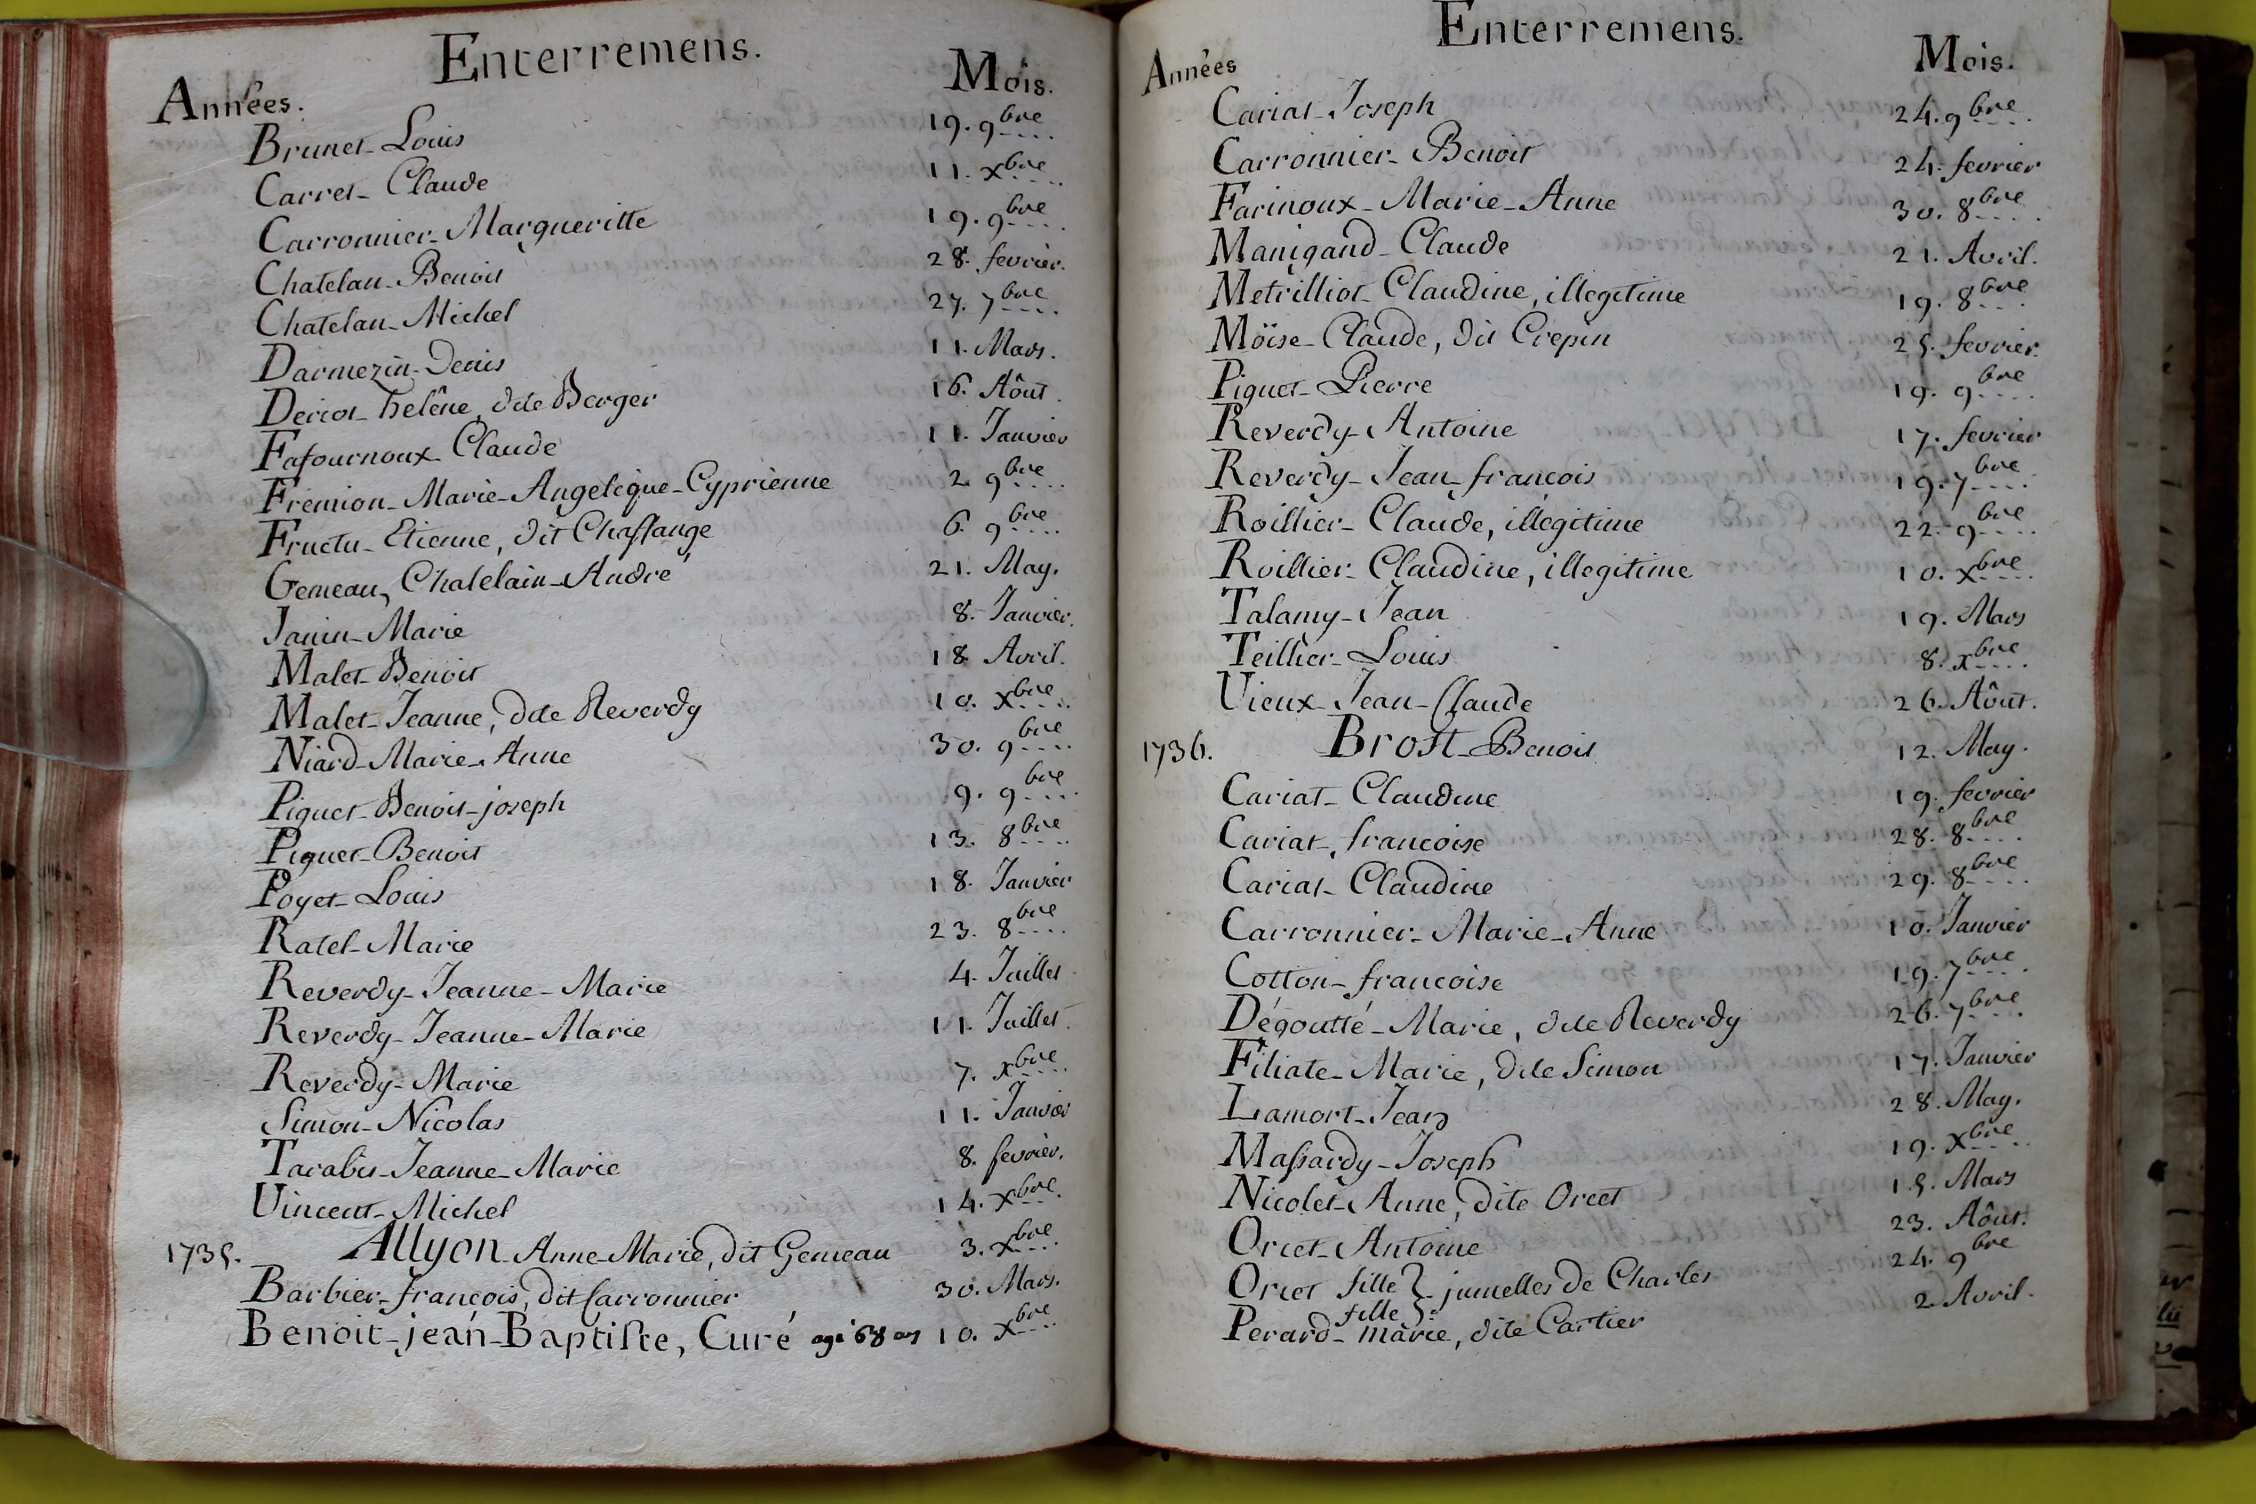 Enterremens.
Années. Mois.
Brunet_ Louis 19. 9bre
Carret_ Claude 11. Xbre
Carronnier_ Margueritte 19. 9bre
Chatelan_ Benoit 28. fevrier.
Chatelan_ Michel 27. 7bre
Darmezin_ Denis 11. Mars.
Deriot_ helêne, dite Berger 16. Aôut.
Fafournoux_ Claude 11. Janvier
Fremion_ Marie_ Angelique_ Cyprienne 2. 9bre
Fructu_ Etienne, dit Chassange 6. 9bre
Gemeau, Chatelain_ André 21. May.
Janin_ Marie 8. Janvier.
Malet_ Benoit 18. Avril.
Malet_ Jeanne, dite Reverdy 10. Xbre
Niard_ Marie_ Anne 30. 9bre
Piquet_ Benoit_ joseph 9. 9bre
Piquet_ Benoit 13. 8bre
Poyet_ Louis 18. Janvier
Ratel_ Marie 23. 8bre
Reverdy_ Jeanne_ Marie 4. Juillet
Reverdy_ Jeanne_ Marie 11. Juillet.
Reverdy_ Marie 7. Xbre
Simon_ Nicolas 11. Janvier
Tarabis_ Jeanne_ Marie 8. fevrier.
Vincent_ Michel 14. Xbre.
1735. Allyon Anne_ Marie, dit Gemeau 3. Xbre
Barbier_ françois, dit Carronnier 30. Mars.
Benoit_ jean_ Baptiste, Curé agé 68 ans 10. Xbre
Enterremens.
Années Mois.
Cariat_ Joseph 24. 9bre
Carronnier_ Benoit 24. fevrier
Farinoux_ Marie_ Anne 30. 8bre
Manigand_ Claude 21. Avril.
Metrilliot_ Claudine, illegitime 19. 8bre
Moïse_ Claude, dit Crepin 25. fevrier.
Piquet_ Pierre 19. 9bre
Reverdy_ Antoine 17. fevrier
Reverdy_ Jean_ francois 19. 7bre
Roillier_ Claude, illégitime 22. 9bre
Roillier_ Claudine, illegitime 10. Xbre
Talamy_ Jean 19. Mars
Teillier_ Louis 8. Xbre
Vieux_ Jean_ Claude 26. Aôut.
1736. Brost_ Benoit 12. May.
Cariat_ Claudine 19. fevrier
Cariat_ francoise 28. 8bre
Cariat_ Claudine 29. 8bre
Carronnier_ Marie_ Anne 10. Janvier
Cotton_ francoise 19. 7bre
Dégoutté_ Marie, dite Reverdy 26. 7bre
Filiate_ Marie, dite Simon 17. Janvier
Lamort_ Jean 28. May.
Massardy_ Joseph 19. Xbre
Nicolet_ Anne, dite Orcet 15. Mars
Orcet_ Antoine 23. Aôut.
Orcet fille } jumelles de Charles 24. 9bre
fille
Perard_ marie, dite Cartier 2. Avril.